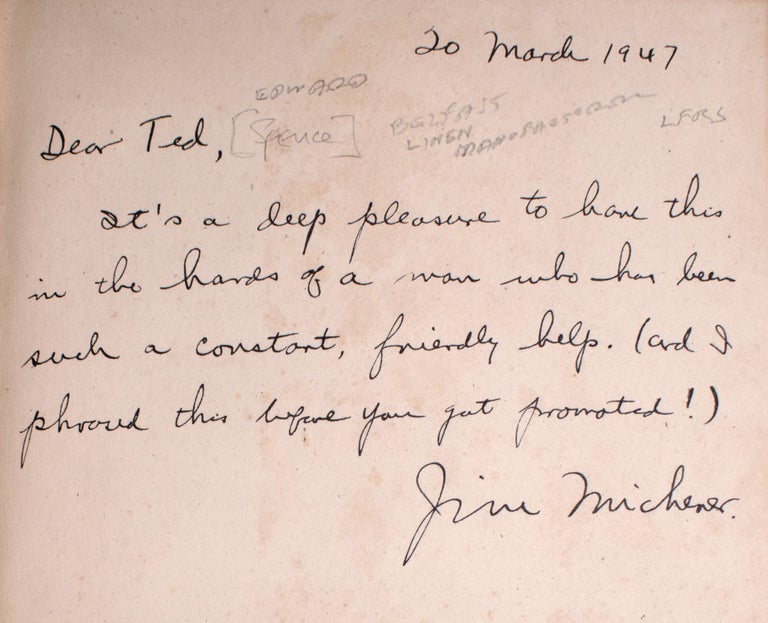 20 March 1947
EDWARD
Dear Ted, [Spence]
BELFAST
LINEN
MANUFACTURER
It's a deep pleasure to have this
in the hands of a man who has been
such a constant, friendly help. (and I
phrased this before you got promoted!)
Jim Michener.